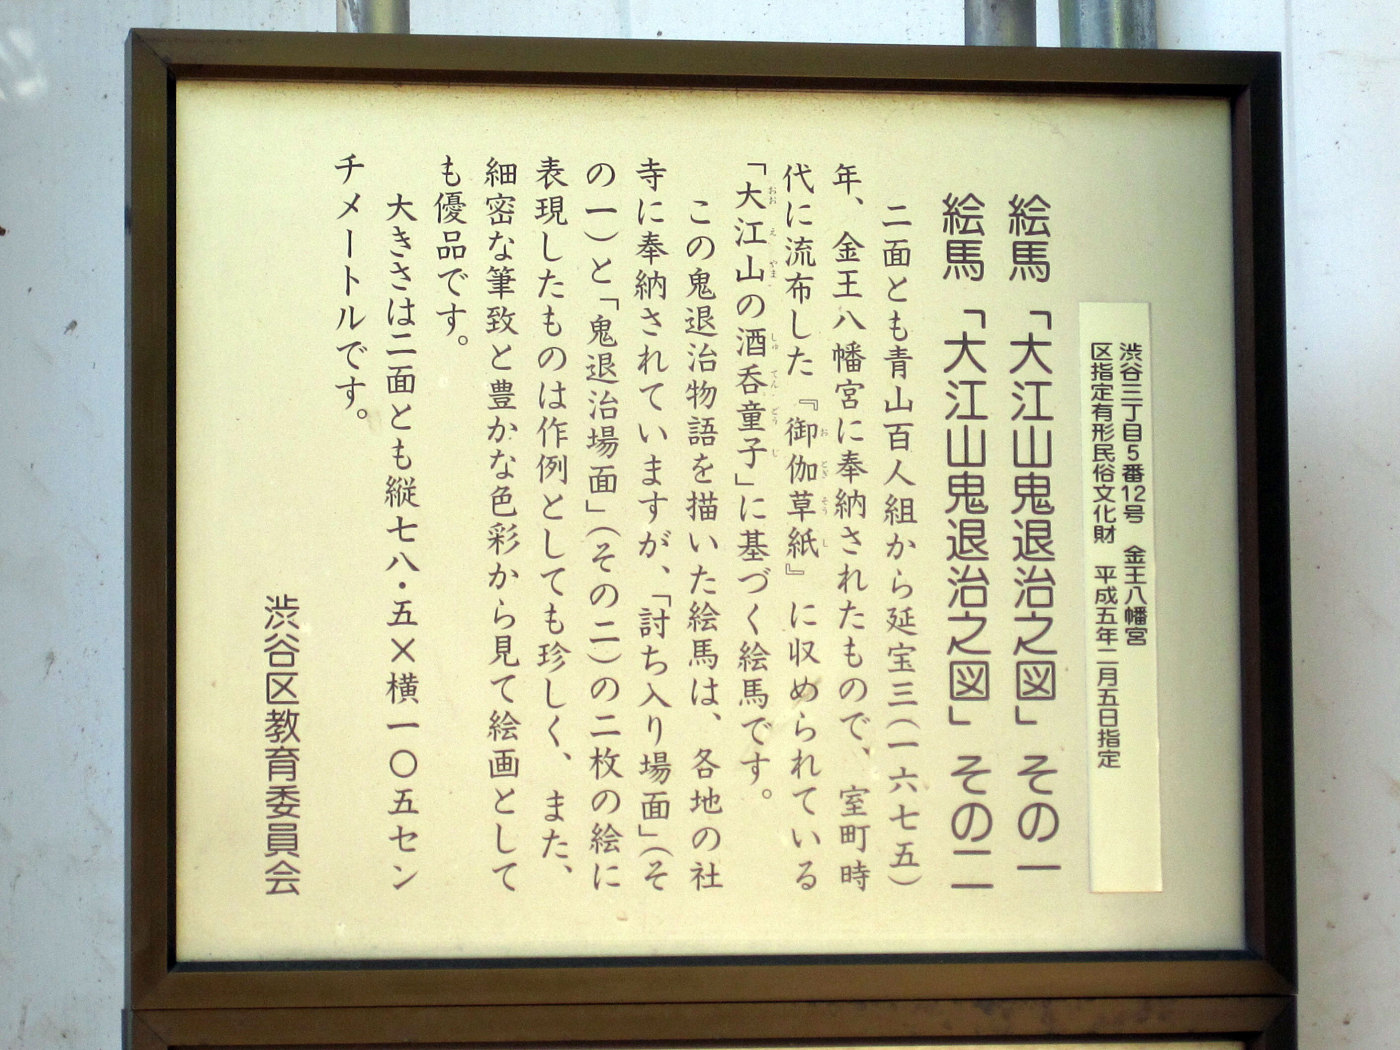 渋谷三丁目5番12号　金王八幡宮
区指定有形民俗文化財　平成五年二月五日指定
絵馬「大江山鬼退治之図」その一
絵馬「大江山鬼退治之図」その二
二面とも青山百人組から延宝三(一六七五)
年、金王八幡宮に奉納されたもので、室町時
代に流布した『御伽草紙』に収められている
「大江山の酒呑童子」に基づく絵馬です。
この鬼退治物語を描いた絵馬は、各地の社
寺に奉納されていますが、「討ち入り場面」(そ
の一)と「鬼退治場面」(その二)の二枚の絵に
表現したものは作例としても珍しく、また、
細密な筆致と豊かな色彩から見て絵画として
も優品です。
大きさは二面とも縦七八・五×横一〇五セン
チメートルです。
渋谷区教育委員会